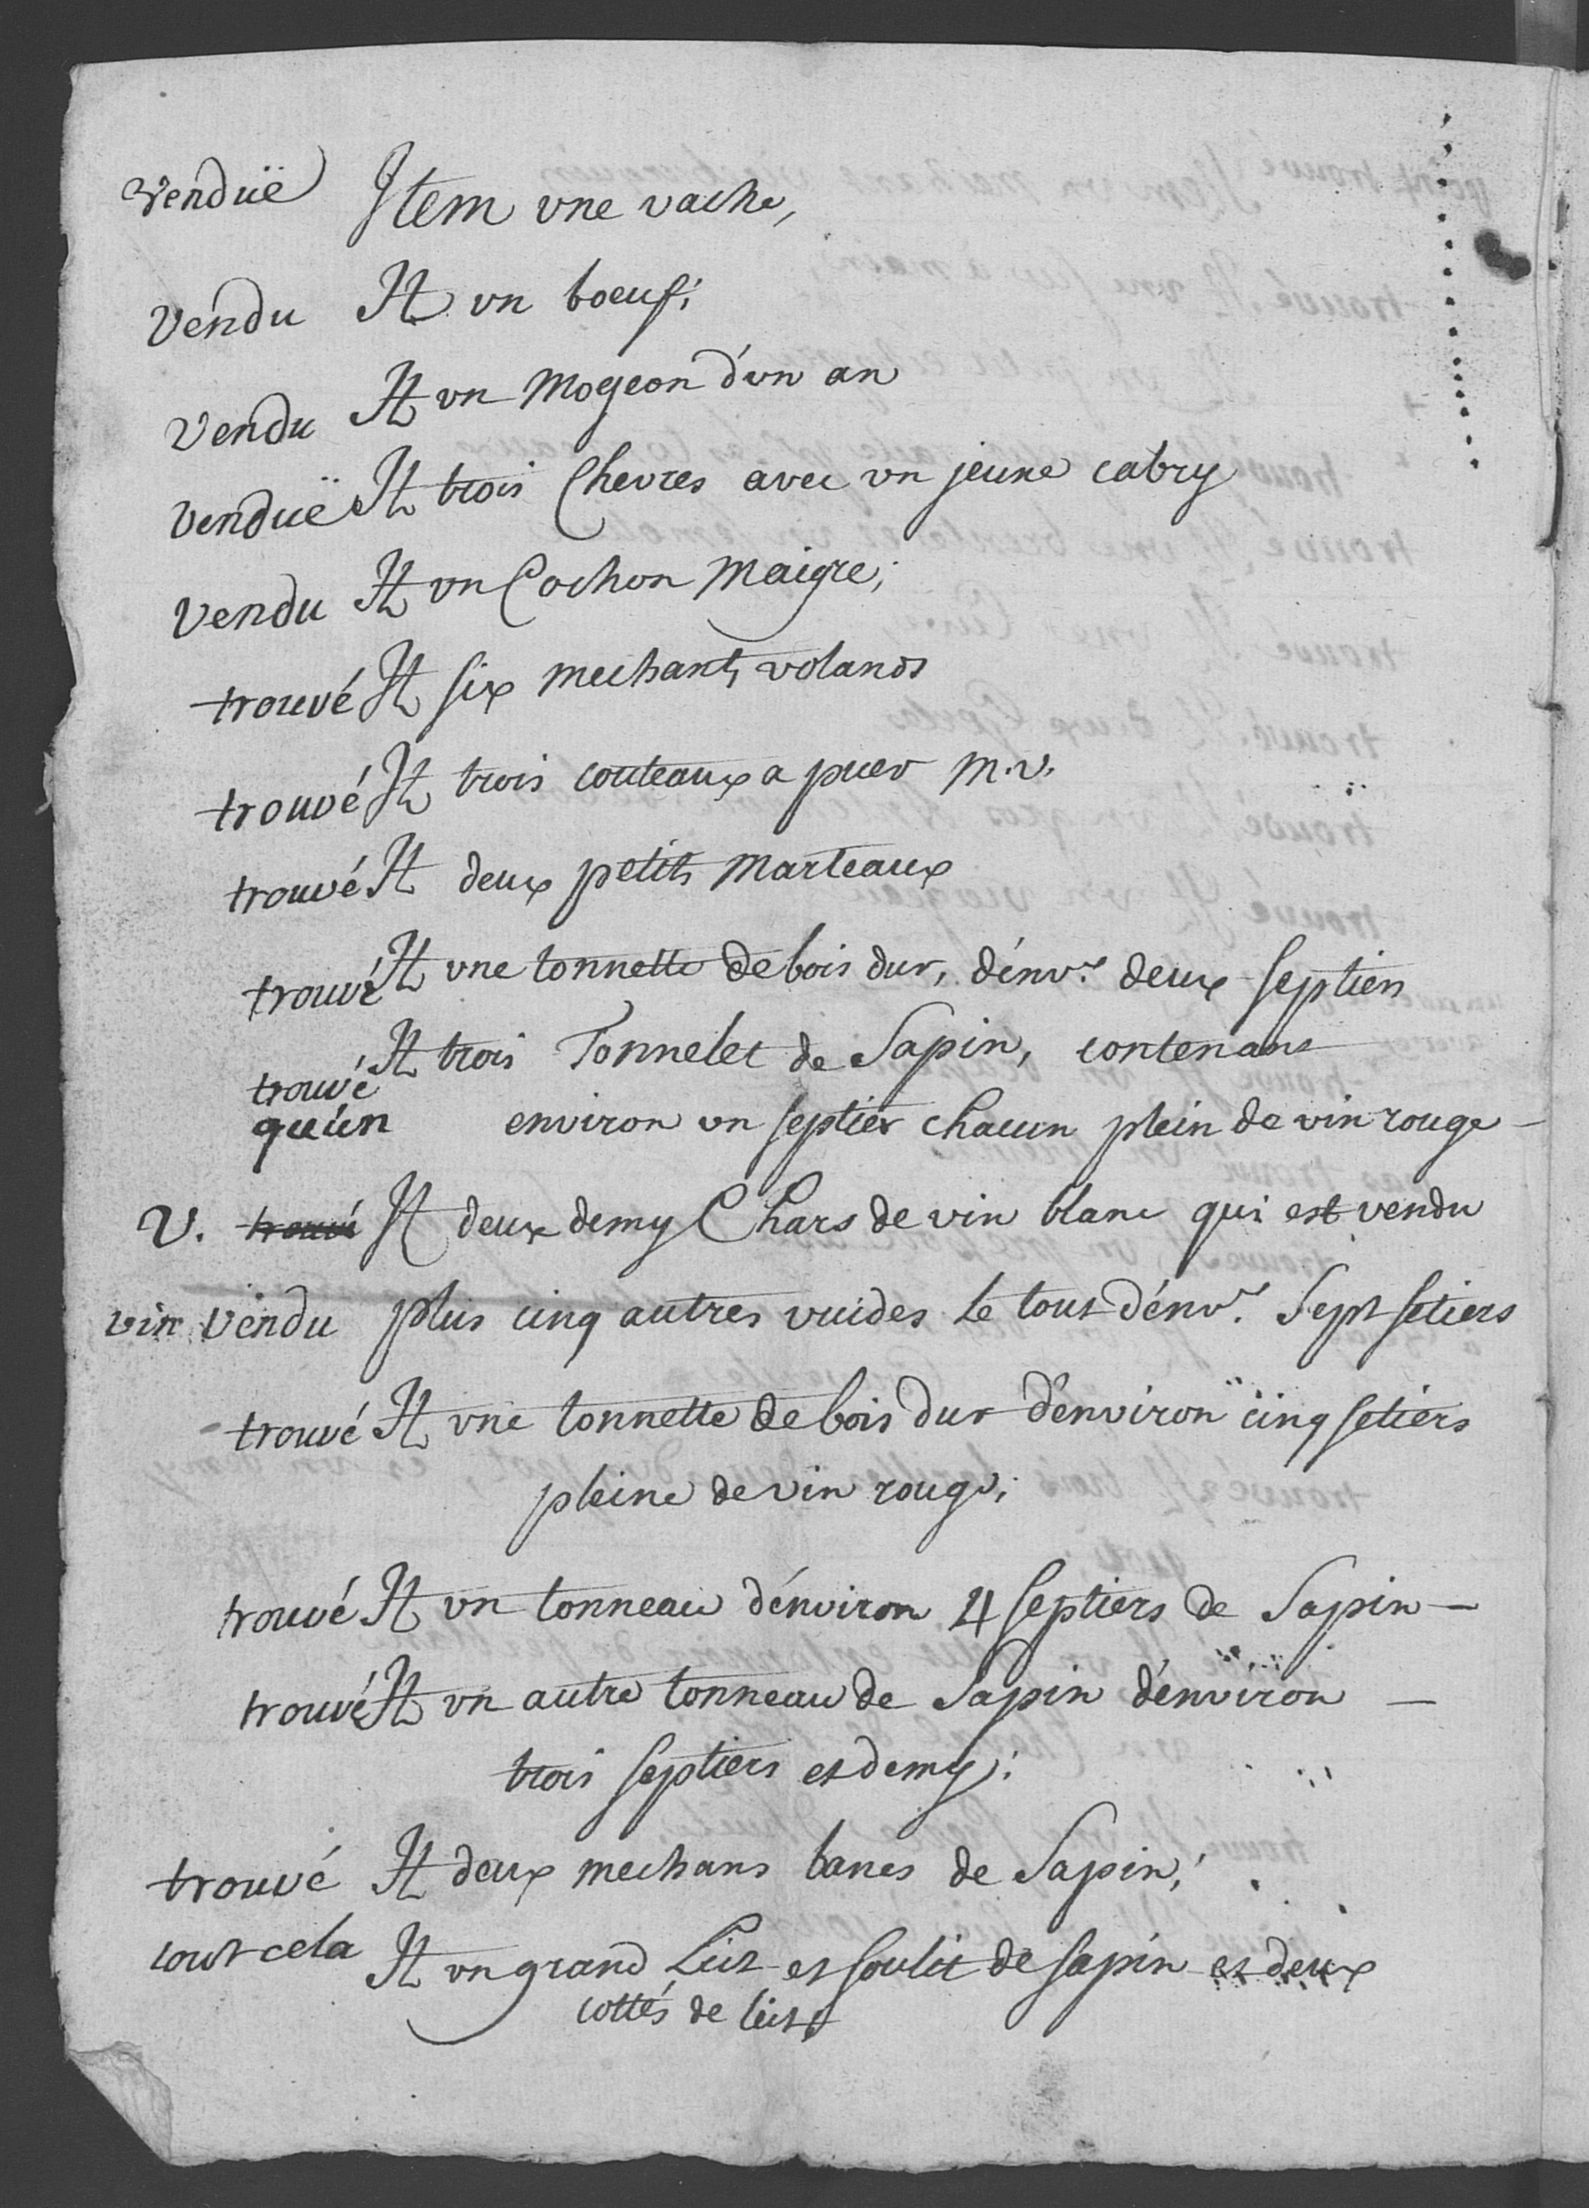 venduë Item vne vache,
vendu It vn boeuf;
vendu It vn mogeon d'vn an
venduë It trois Chevres avec vn jeune cabry
vendu It vn Cochon maigre;
trouvé It six mechants volands
trouvé It trois couteaux a puer m.v.
trouvé It deux petits marteaux
trouvé It vne tonnette de bois dur, d'env.n deux septiers
trouvé It trois Tonnelet de Sapin, contenant
qu'un environ vn septier chacun plein de vin rouge
V. trouvé It deux demy Chars de vin blanc qui est vendu
vin vendu plus cinq autres vuides le tout d'env.n Sept setiers
trouvé It vne tonnette de bois dur d'environ cinq setiers
pleine de vin rouge;
trouvé It vn tonneau d'environ 4 septiers de Sapin
trouvé It vn autre tonneau de Sapin d'environ
trois septiers et demy;
trouvé It deux mechans bancs de Sapin;
tout cela It vn grand Lict et soulit de sapin et deux
cottés de lict